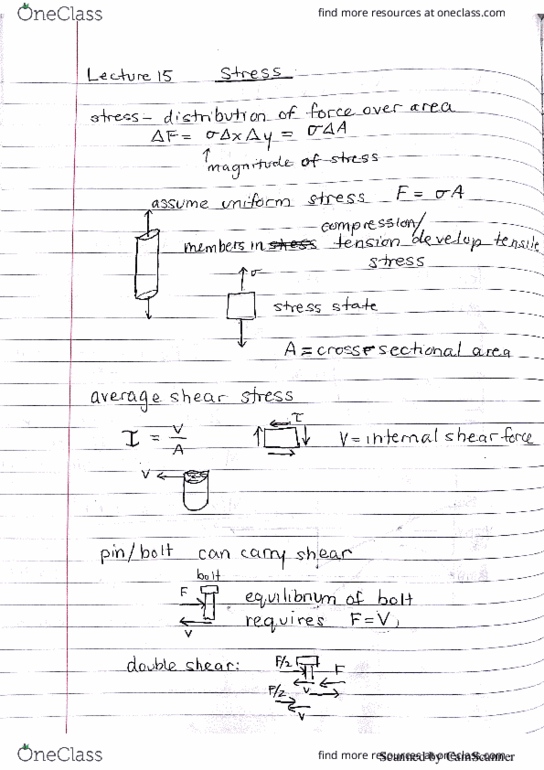 OneClass
find more resources at oneclass.com
Lecture 15 Stress
stress - distribution of force over area
ΔF = σΔxΔy = σΔA
↑ magnitude of stress
assume uniform stress F = σA
compression/
members in stress tension develop tensile
stress
σ
stress state
A = cross-sectional area
average shear stress
τ = V/A
τ
V = internal shear force
V
pin/bolt can carry shear
bolt
F
equilibrium of bolt
requires F = V
V
double shear:
F/2
F
V
F/2
V
OneClass
find more resources at oneclass.com
Scanned by CamScanner